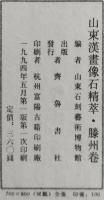 山東漢畫像石精萃·滕州卷
編者 山東石刻藝術博物館
出版 齊魯書社
發行者
印刷者 杭州富陽古籍印刷廠
一九九四年五月第一版第一次印刷
定價：三六〇圓